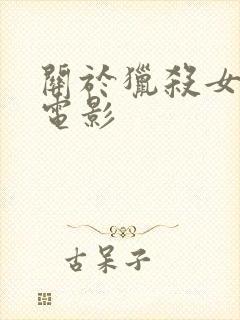 關於獵殺女
電影
古呆子